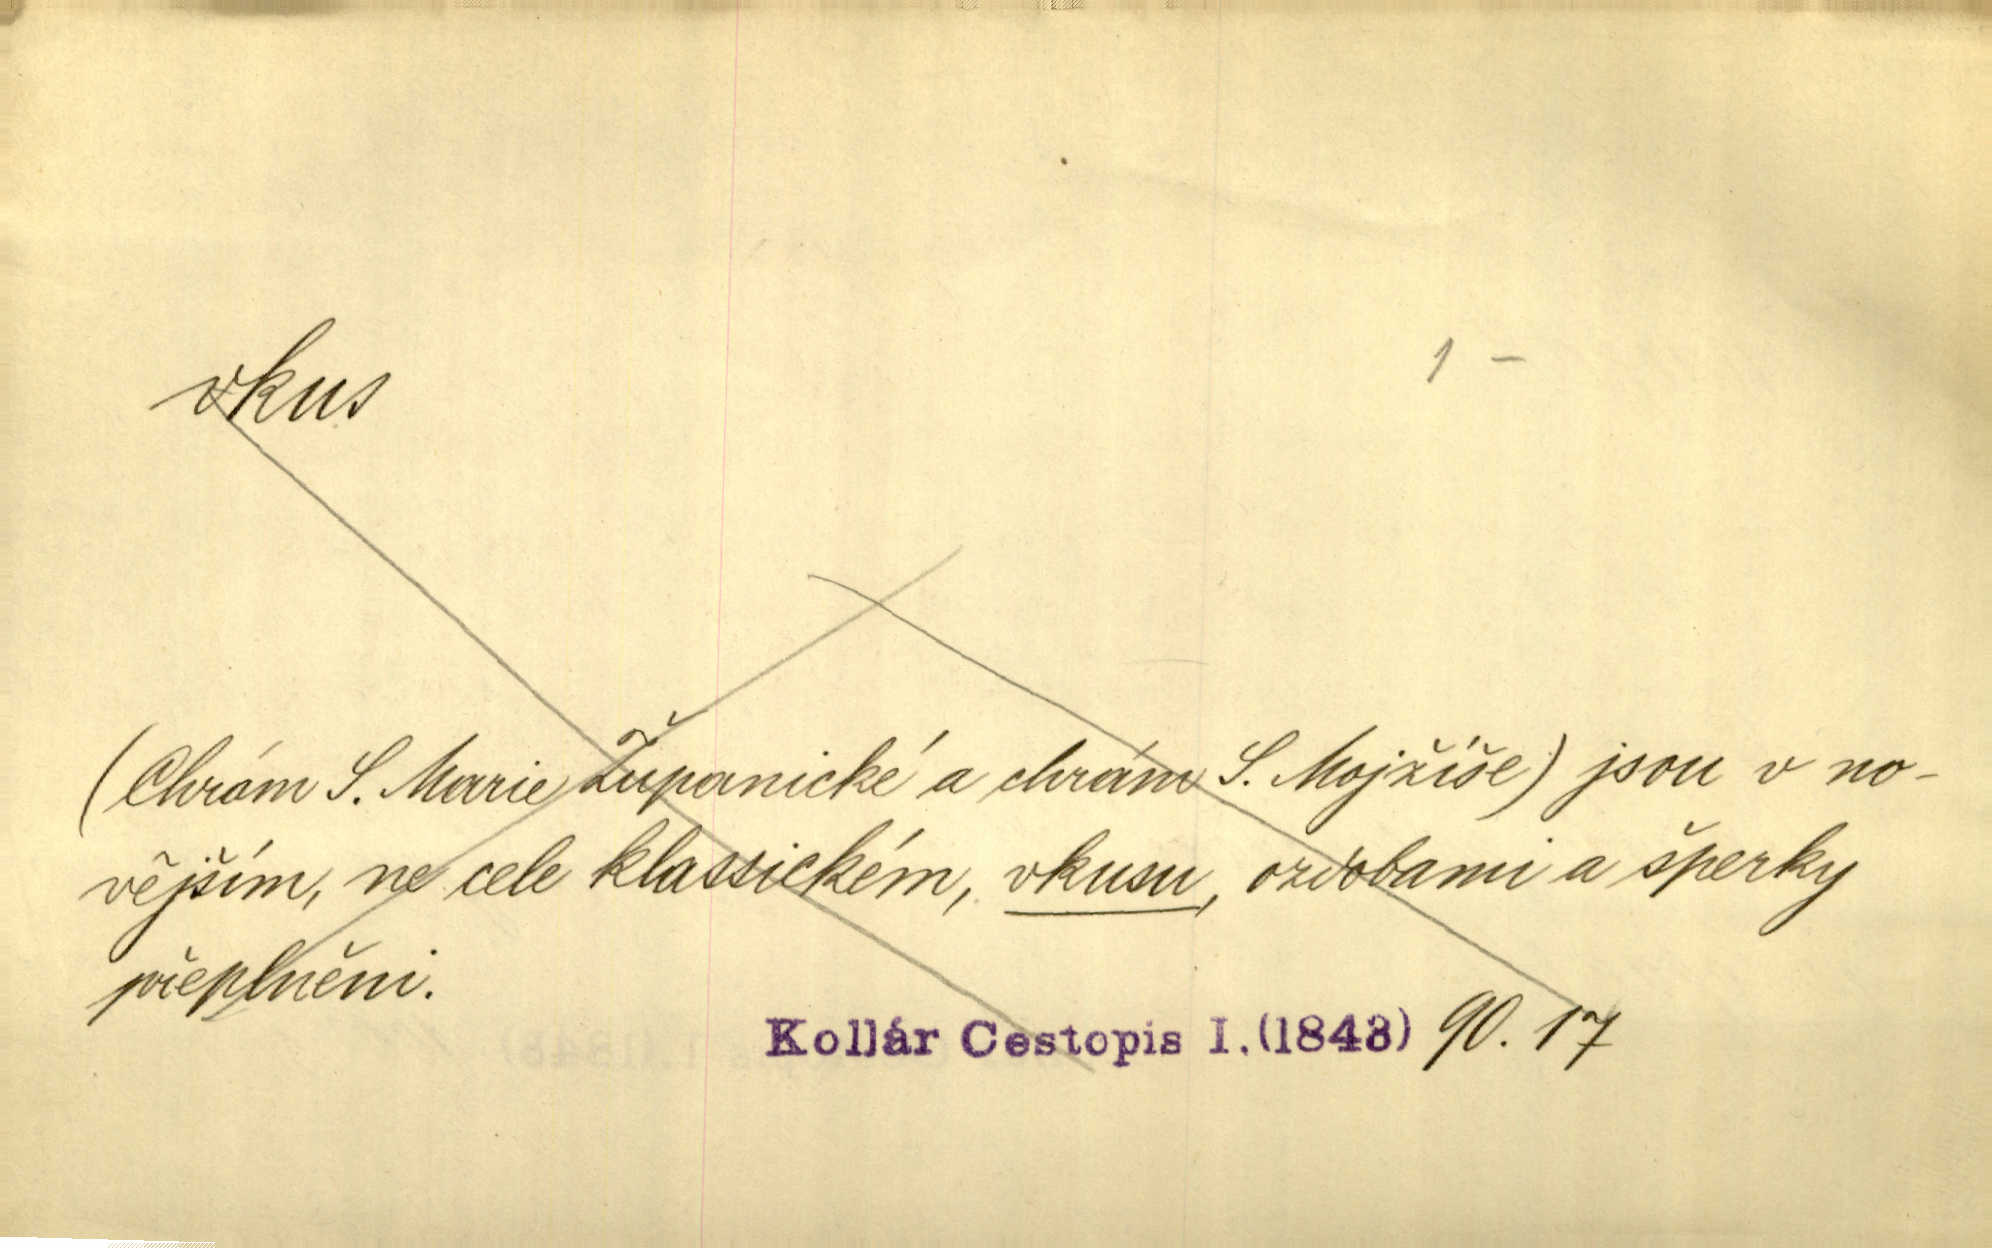 vkus
1 -
(Chrám S. Marie Županické a chrám S. Mojžíše) jsou v no-
vějším, ne cele klassickém, vkusu, ozdobami a šperky
přeplněni.
Kollár Cestopis I.(1843) 90. 17